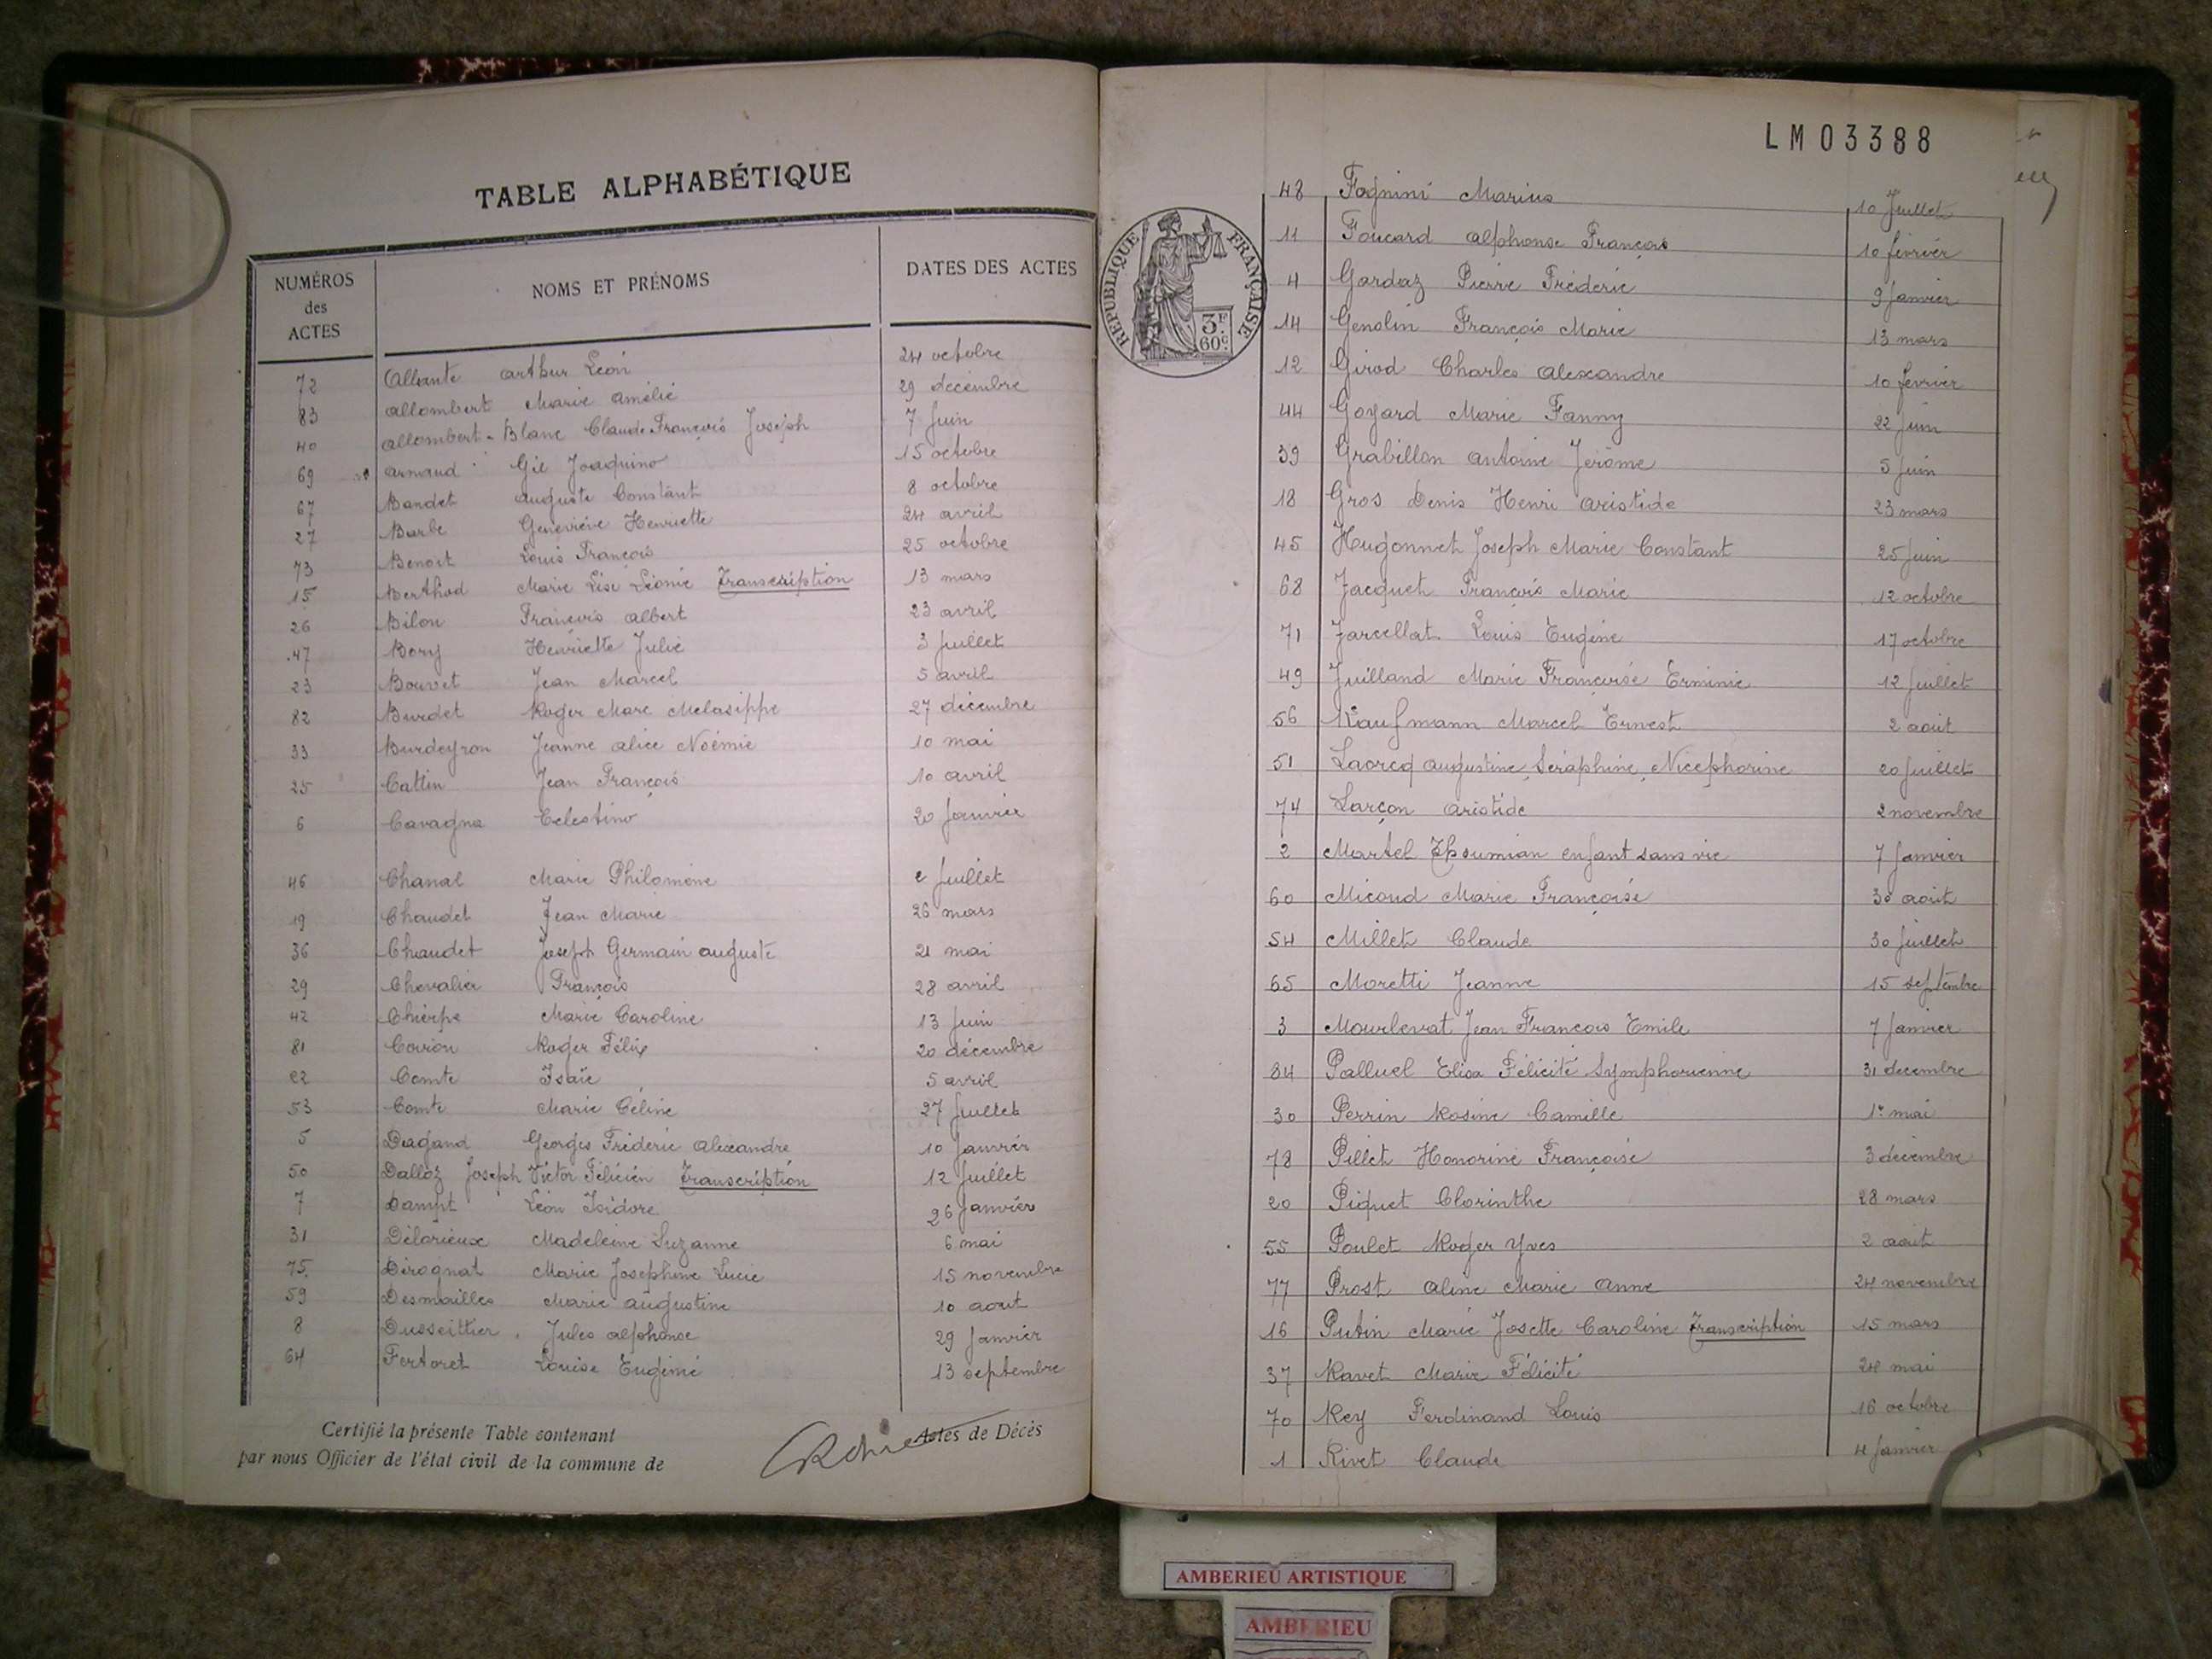 TABLE ALPHABÉTIQUE
NUMÉROS des ACTES NOMS ET PRÉNOMS DATES DES ACTES
72 Allante Arthur Léon 24 octobre
83 Allombert Marie Amélie 29 décembre
40 Allombert-Blanc Claude François Joseph 7 Juin
69 Arnaud Gil Joaquino 15 octobre
67 Bandet Auguste Constant 8 octobre
27 Barbe Geneviève Henriette 24 avril
73 Benoit Louis François 25 octobre
15 Berthod Marie Lise Léonie Transcription 13 mars
26 Bilon François Albert 23 avril
47 Bory Henriette Julie 3 Juillet
23 Bouvet Jean Marcel 5 avril
82 Burdet Roger Marc Melasippe 27 décembre
33 Burdeyron Jeanne Alice Noémie 10 mai
25 Cattin Jean François 10 avril
6 Cavagna Celestino 20 Janvier
46 Chanal Marie Philomène 2 Juillet
19 Chaudet Jean Marie 26 mars
36 Chaudet Joseph Germain Auguste 21 mai
29 Chevalier François 28 avril
42 Chierpe Marie Caroline 13 Juin
81 Roger Félix 20 décembre
22 Comte Isaïe 5 avril
53 Comte Marie Céline 27 Juillet
5 Dagand Georges Fréderic Alexandre 10 Janvier
50 Dalloz Joseph Victor Félicien Transcription 12 Juillet
7 Dampt Léon Isidore 26 Janvier
31 Délorieux Madeleine Suzanne 6 mai
75 Dérognat Marie Josephine Lucie 15 novembre
59 Desmailles Marie Augustine 10 aout
8 Dusseittier Jules Alphonse 29 Janvier
64 Fertoret Louise Eugénie 13 septembre
Certifié la présente Table contenant Actes de Décès
par nous Officier de l'état civil de la commune de
LM03388
RÉPUBLIQUE FRANÇAISE
3F 60c
48 Fognini Marius 10 Juillet
11 Foucard Alphonse François 10 février
4 Gardaz Pierre Fréderic 9 Janvier
14 Genolin François Marie 13 mars
12 Girod Charles Alexandre 10 février
44 Goyard Marie Fanny 22 Juin
39 Grabillon Antoine Jérôme 5 Juin
18 Gros Denis Henri Aristide 23 mars
45 Hugonnet Joseph Marie Constant 25 Juin
68 Jacquet François Marie 12 octobre
71 Jarcellat Louis Eugène 17 octobre
49 Juilland Marie Françoise Erminie 12 Juillet
56 Kaufmann Marcel Ernest 2 aout
51 Lacrcq Augustine, Séraphine, Nicephorine 20 Juillet
74 Larçon Aristide 2 novembre
2 Martel enfant sans vie 7 Janvier
60 Micoud Marie Françoise 30 août
54 Millet Claude 30 Juillet
65 Moretti Jeanne 15 septembre
3 Mourlevat Jean François Emile 7 Janvier
84 Palluel Elisa Félicité Symphorienne 31 decembre
30 Perrin Rosine Camille 1er mai
78 Pillet Honorine Françoise 3 décembre
20 Piquet Clorinthe 28 mars
55 Poulet Roger Yves 2 août
77 Prost Aline Marie Anne 24 novembre
16 Putin Marie Josette Caroline Transcription 15 mars
37 Ravet Marie Félicité 24 mai
70 Rey Ferdinand Louis 16 octobre
1 Rivet Claude 4 Janvier
AMBERIEU ARTISTIQUE
AMBERIEU